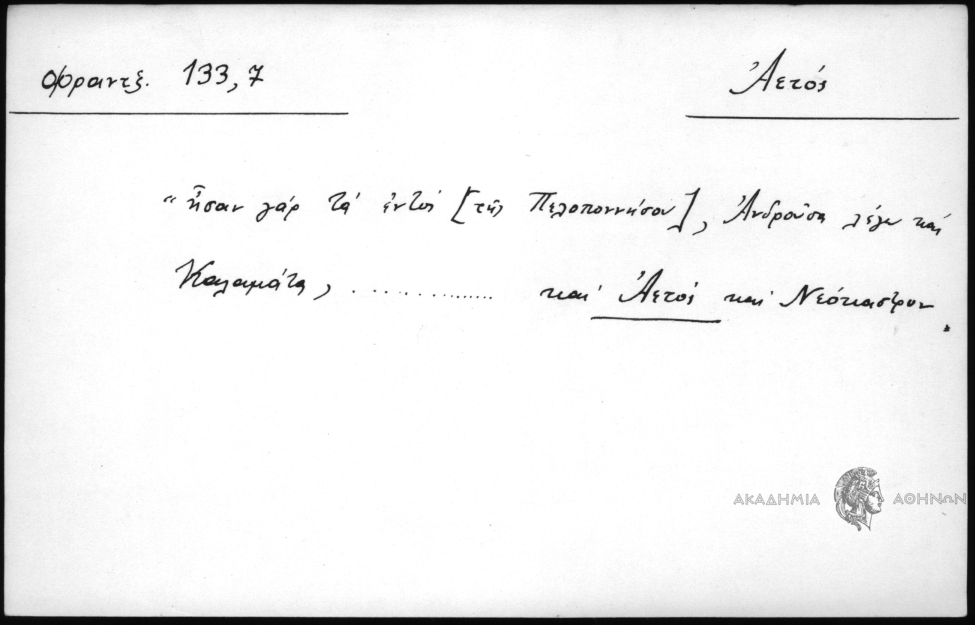 Φραντξ. 133,7
Ἀετός
“ ἦσαν γάρ τά ἐντός [τῆς Πελοποννήσου], Ἀνδροῦσα λέγω καί
Καλαμάτα, .............. καί Ἀετός καί Νεόκαστρον.
ΑΚΑΔΗΜΙΑ ΑΘΗΝΩΝ